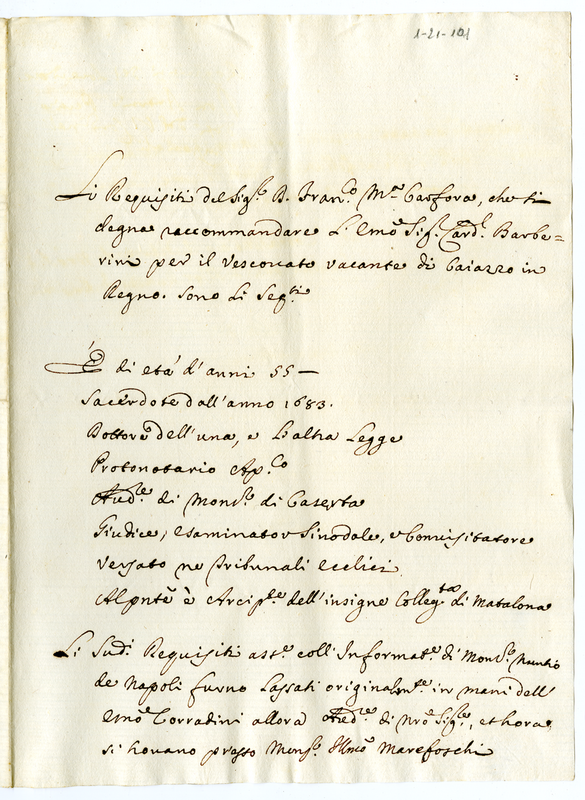 1-21-101
Li Requisiti del Sig.r D. Fran.co M.a Carfora, che si
degna raccommandare L'Emo Sig.r Card.l Barbe=
rini per il Vescovato vacante di Caiazzo in
Regno. Sono Li Seg.ti
È di età d'anni 55 —
Sacerdote dall'anno 1683.
Dottore dell'una, e L'altra Legge
Protonotario Ap.co
Aud.re di Mons.r di Caserta
Giudice, esaminator Sinodale, e Convisitatore
Versato ne Tribunali Eccl.ici
Al pnte è Arcip.te dell'insigne Colleg.ta di Matalona
Li Sud.i Requisiti coll'Informat.e di Mons.r Nuntio
de Napoli furno Lassati originalm.te in mani dell'
Emo Corradini allora Aud.re di Nro Sig.re, et hora
si trovano presso Mons.r Illmo Marefoschi